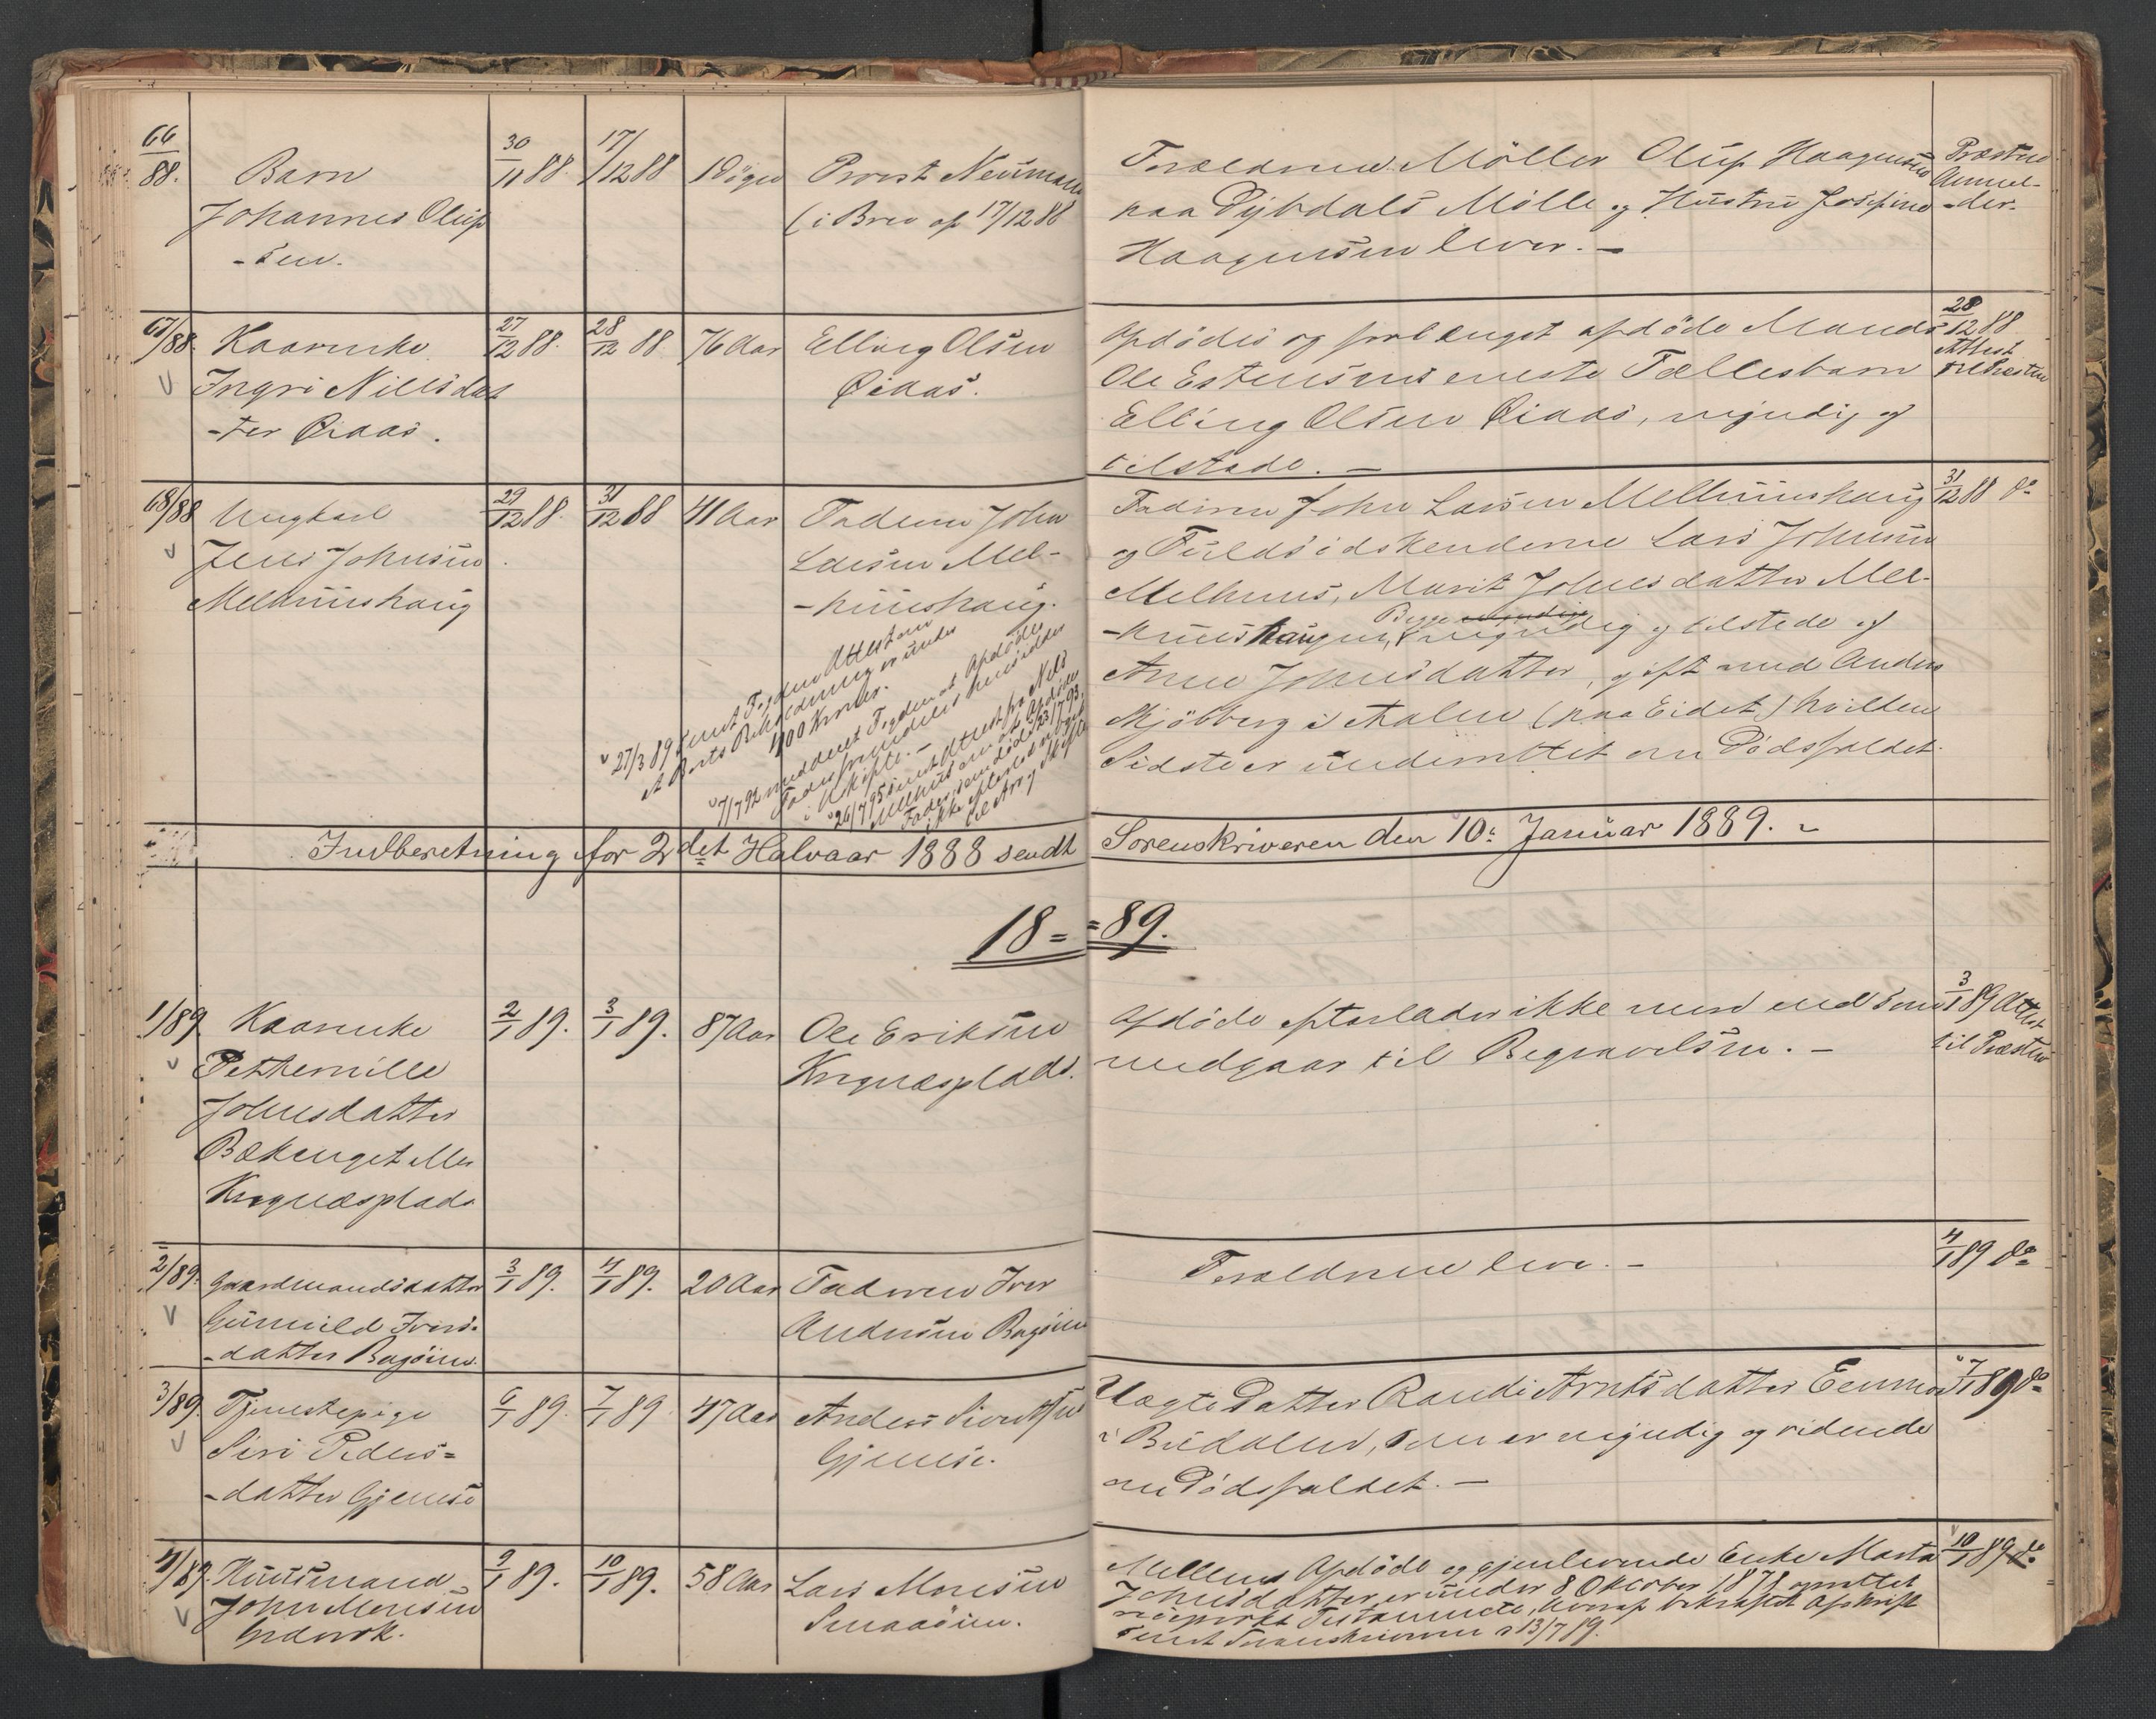 66/88.
Barn
Johannes Oluf
-sen.
30/11 88.
17/12 88
1 Døgn
Provst Neumann
(i Brev af 17/12 88
Forældrene Møller Oluf Haagensen
paa Dybdals Mølle og Hustru Josefine
Haagensen lever. –
Præsten
Anmel-
-der.
67/88.
Kaarenke
Ingri Nilsdat
-ter Øiaas.
27/12 88.
28/12 88
76 Aar
Elling Olsen
Øiaas.
Afdødes og forlængst afdøde Mands
Ole Estensens eneste Fællesbarn
Elling Olsen Øiaas, myndig og
tilstede. –
28/12 88
Attest
til Præsten
68/88
Ungkarl
Jens Johnsen
Melhuushaug
29/12 88.
31/12 88
41 Aar
Faderen John
Larsen Mel-
-huushaug.
Faderen John Larsen Melhuushaug
og Fuldsødskenderne Lars Johnsen
Melhuus, Marit Johnsdatter Mel-
-huushaugen, Begge myndig og tilstede og
Anne Johnsdatter, gift med Anders
Mjöbberg i Aalen (paa Eidet) hvilken
Sidste er underrettet om Dødsfaldet.
31/12 88 do
27/3 89 sendt Fogden Attest om
at Boets Beholdning er under
400 Kroner.
7/7 92 meddelt Fogden at Afdøde
Fader fremdeles hensidder
i uskifte. –
26/7 95 sendt Attest fra Nils
Melhuus om at Afdødes
Fader, som døde 23/7 93,
ikke efterlod noget
til Arv og Skifte
Indberetning for 2det Halvaar 1888 sendt Sorenskriveren den 10. Januar 1889. –
18= =89.
1/89.
Kaarenke
Petternille
Johnsdatter
Bækenget eller
Krognæsplads
2/1 89.
3/1 89.
87 Aar
Ole Eriksen
Krognæsplads.
Afdøde efterlader ikke mere end som
medgaar til Begravelsen. –
3/1 89 Attest
til Præsten
2/89.
Gaardmandsdatter
Gunnild Ivers-
-datter Bagøien.
3/1 89.
4/1 89.
20 Aar
Faderen Iver
Andersen Bagøien
Forældrene leve. –
4/1 89 do
3/89.
Tjenestepige
Siri Peders=
-datter Gjemse
6/1 89.
7/1 89
47 Aar
Anders Sivertsen
Gjemse.
Uægte Datter Randi Arntsdatter Eenmo
i Budalen, som er myndig og vidende
om Dødsfaldet. –
7/1 89 do
4/89.
Huusmand
John Monsen
Grovrok.
9/1 89.
10/1 89.
58 Aar
Lars Monsen
Smaaøien.
Mellem Afdøde og gjenlevende Enke Marta
Johnsdatter er under 8 Oktober 1878 oprettet
Testamente, hvoraf bekræftet Afskrift
sendt Sorenskriveren 13/7 89.
10/1 89 do